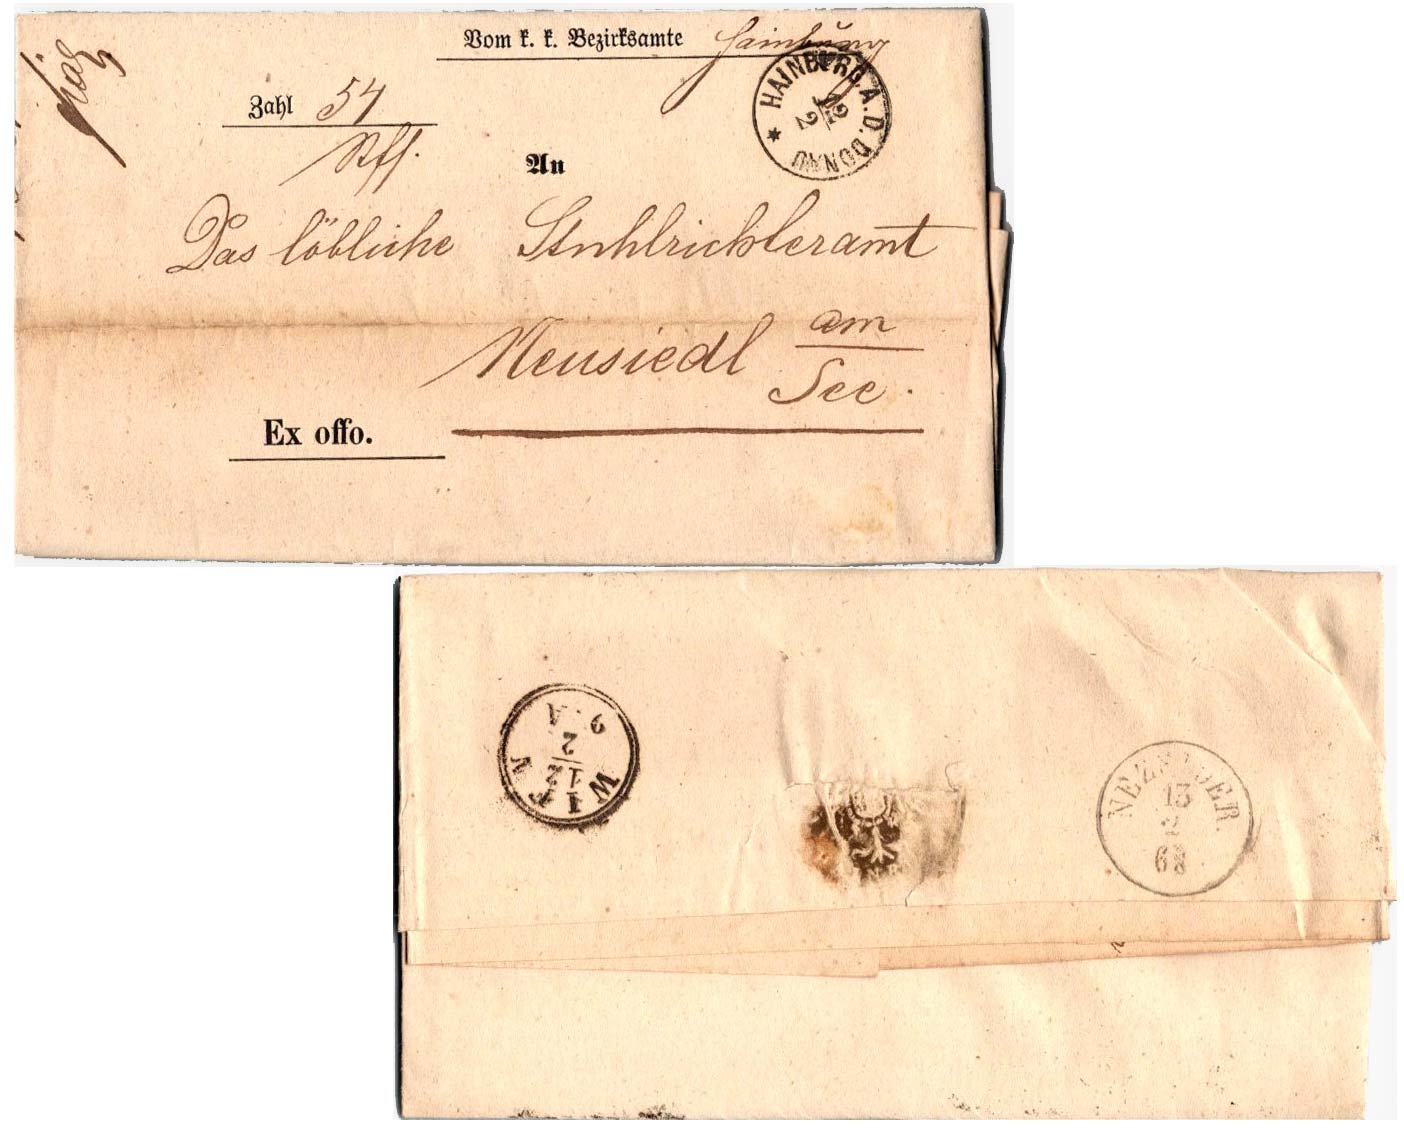 Vom k. k. Bezirksamte Hainburg
HAINBURG A. D. DONAU
12
2
Zahl 54
An
Das löbliche Stuhlrichteramt
Neusiedl am
See.
Ex offo.
WIEN
12
2
9 A
NEZSIDER.
13
2
68